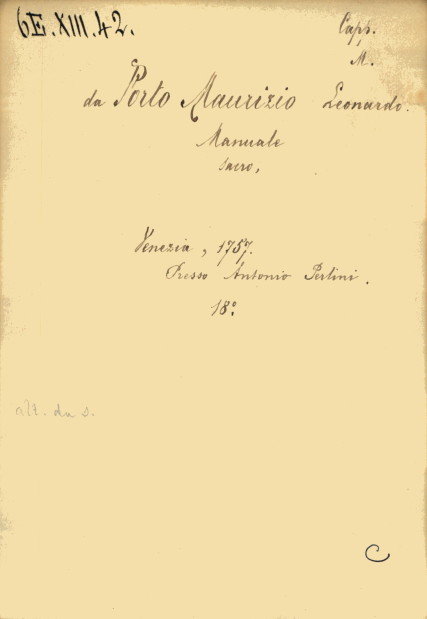 6E.XIII.42.
Capp.
M.
da Porto Maurizio Leonardo.
Manuale
sacro,
Venezia, 1757.
Presso Antonio Perlini.
18°.
alt. da s.
C